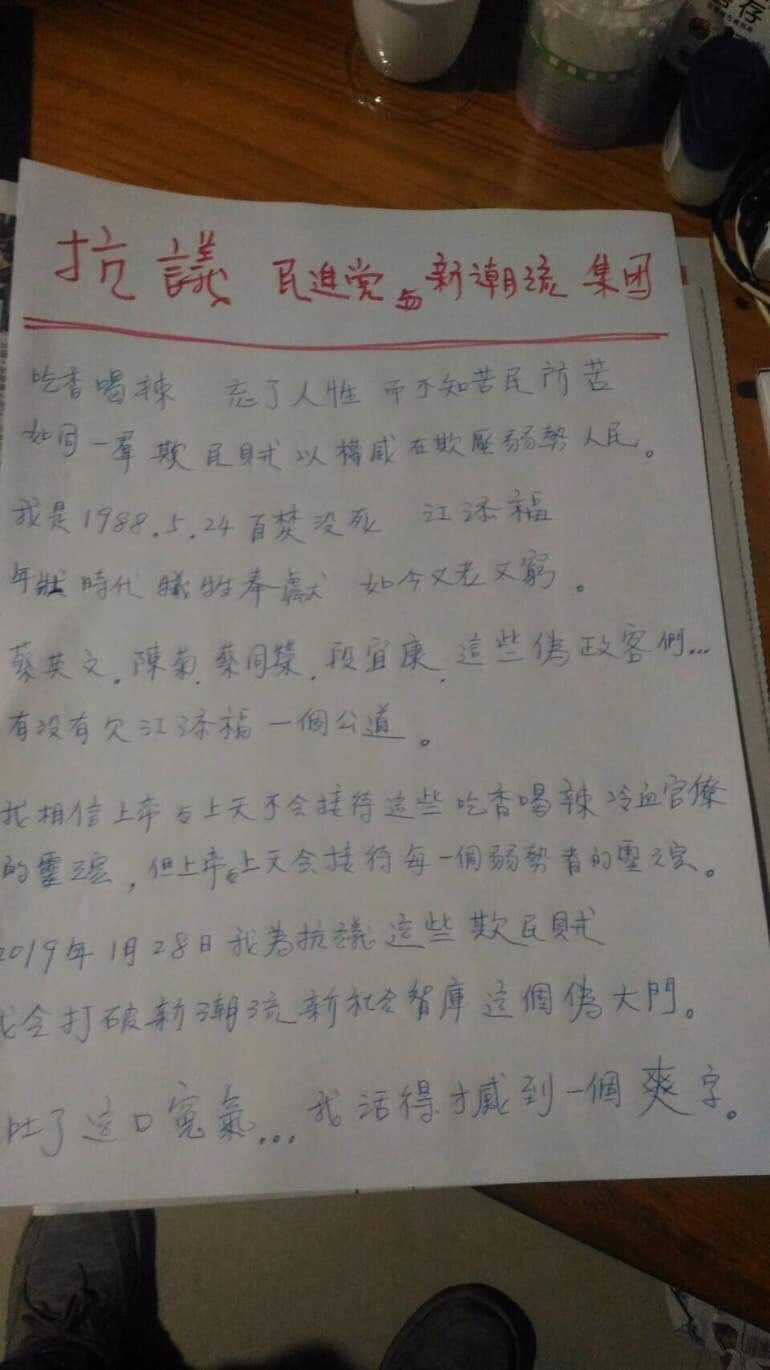 抗議 民進党与新潮流集团
吃香喝辣 忘了人性 而不知苦民所苦
如同一羣欺民賊以權威在欺壓弱勢人民。
我是1988.5.24自焚没死 江添福
年壯時代犠牲奉獻 如今又老又窮。
蔡英文.陳菊.蔡同榮.段宜康.這些偽政客們...
有没有欠江添福一個公道。
我相信上帝与上天不会接待這些吃香喝辣冷血官僚
的靈魂,但上帝与上天会接待每一個弱勢者的靈魂。
2019年1月28日我為抗議這些欺民賊
我会打破新潮流新社会智庫這個偽大門。
吐了這口寃氣...我活得才感到一個爽字。
存